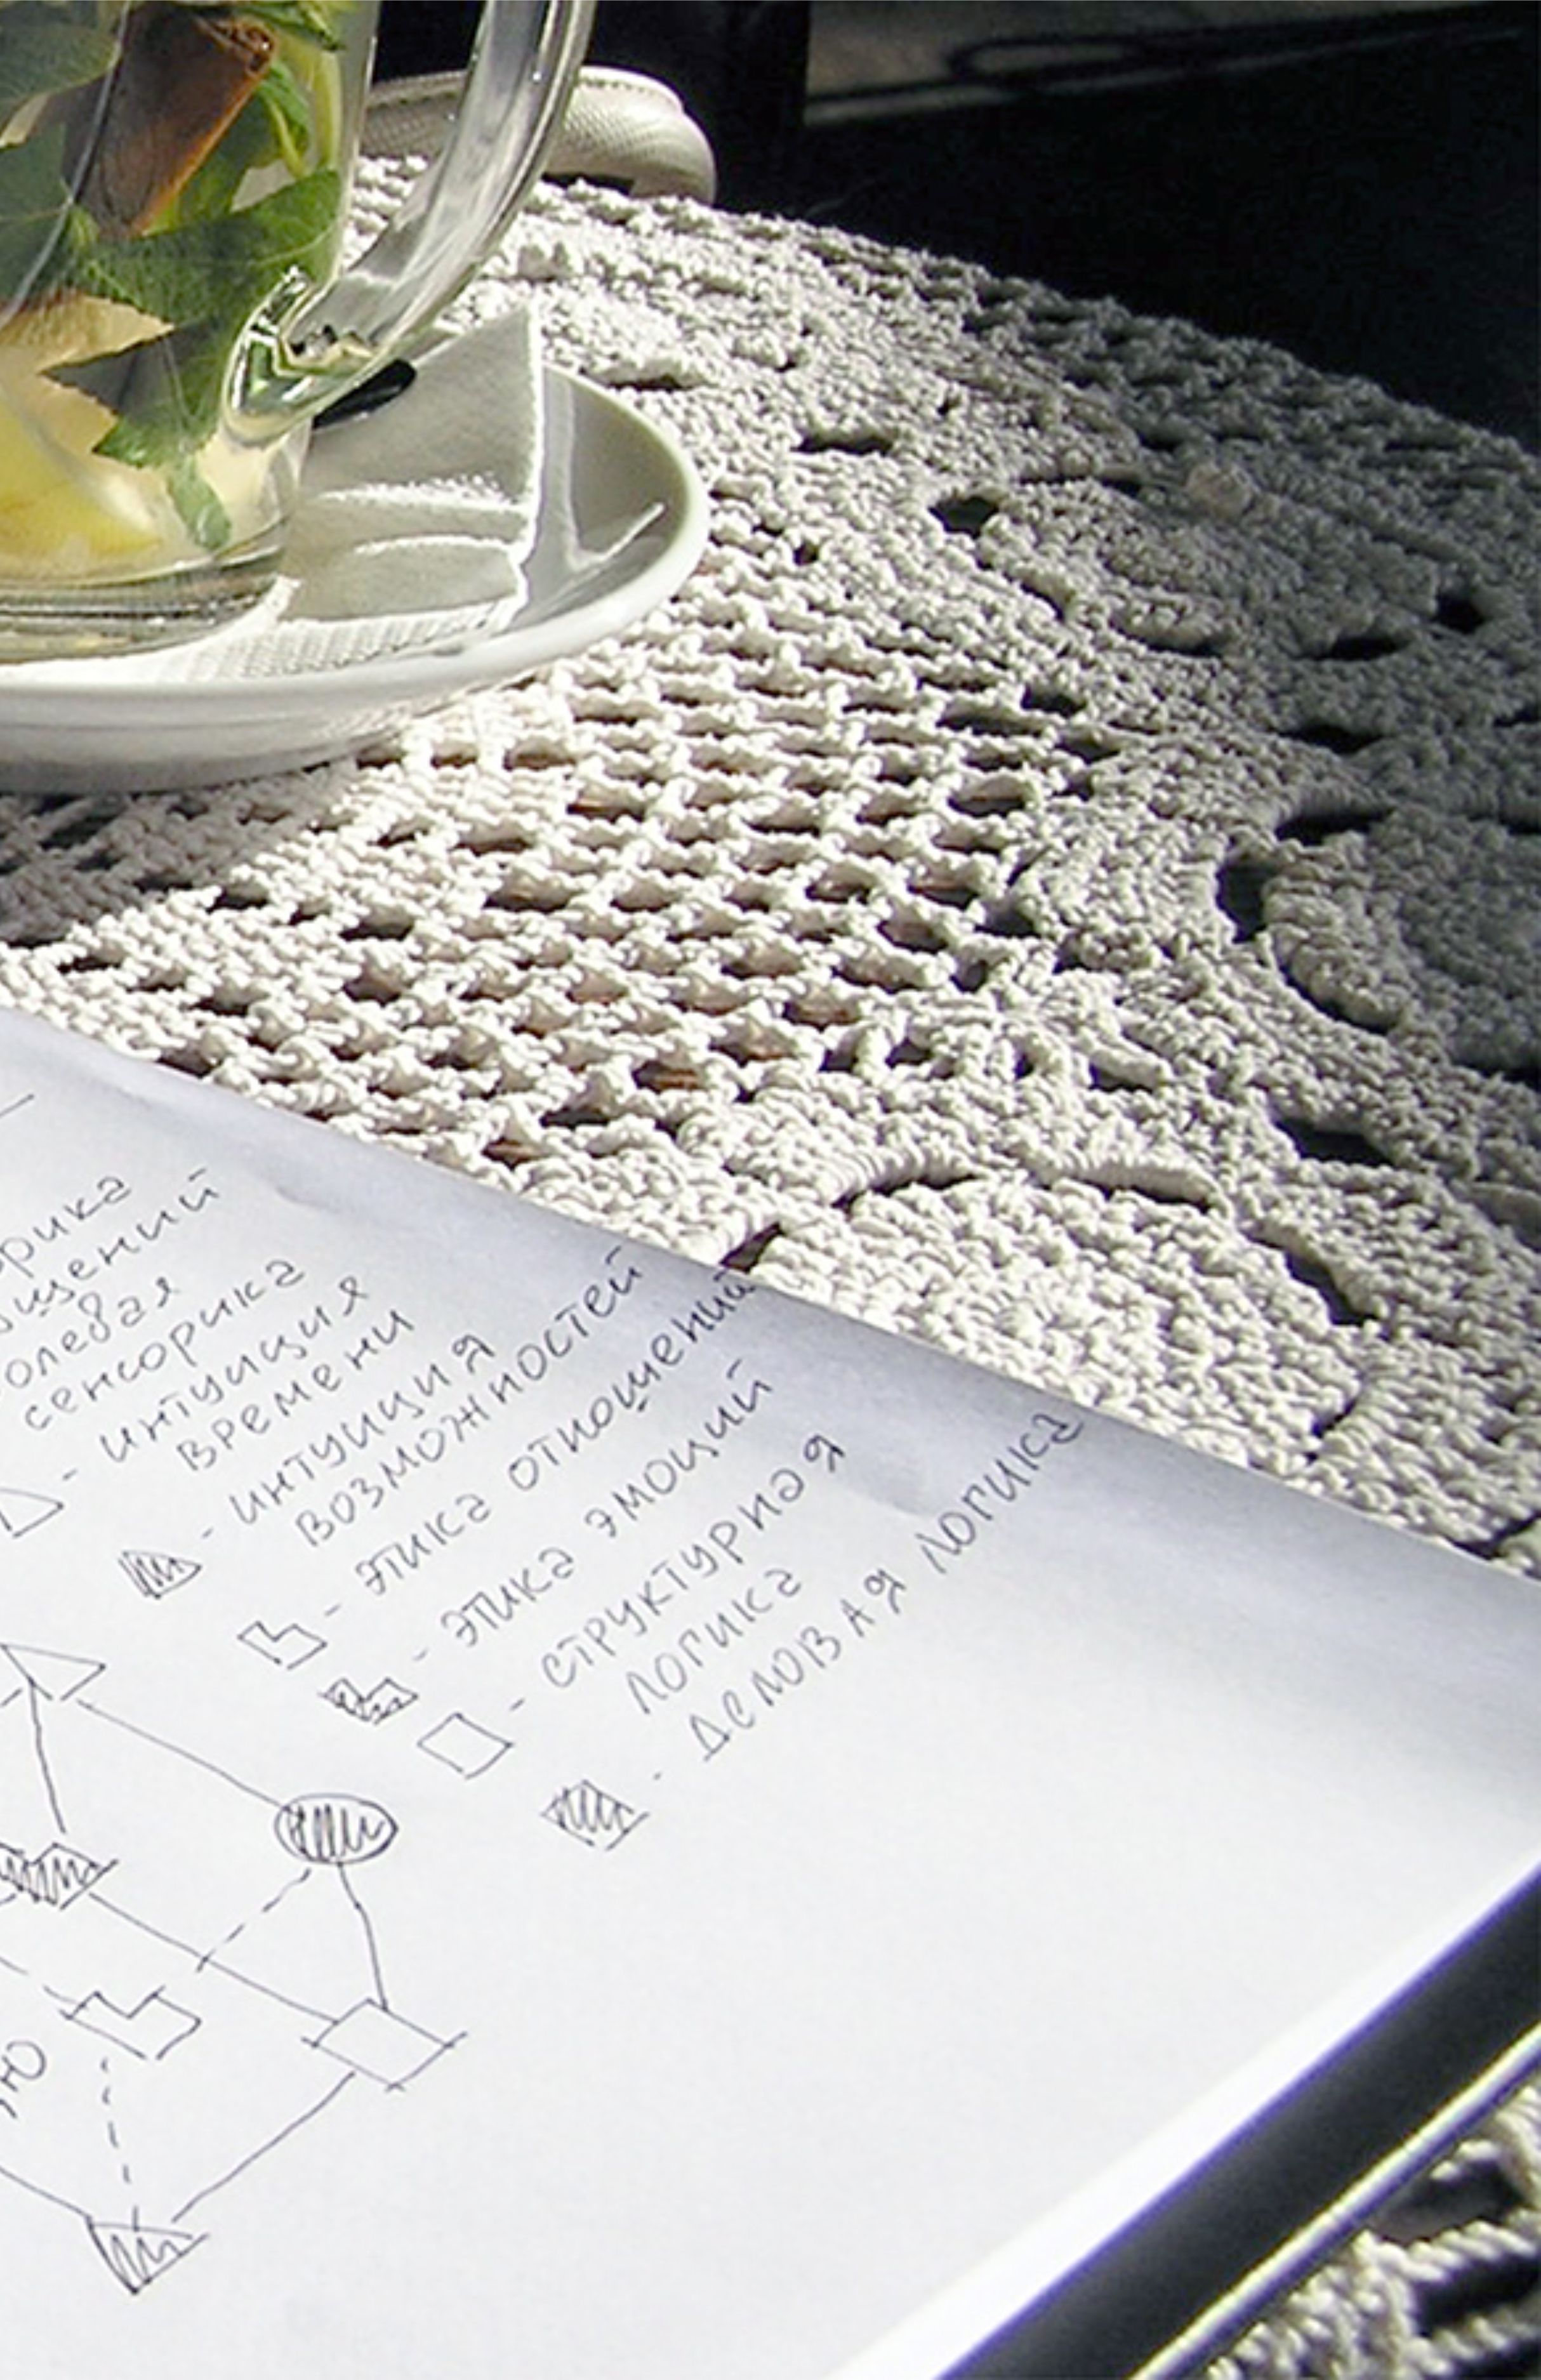 сенсорика
- интуиция
времени
- интуиция
возможностей
- этика отношений
- этика эмоций
- структурная
логика
- деловая логика